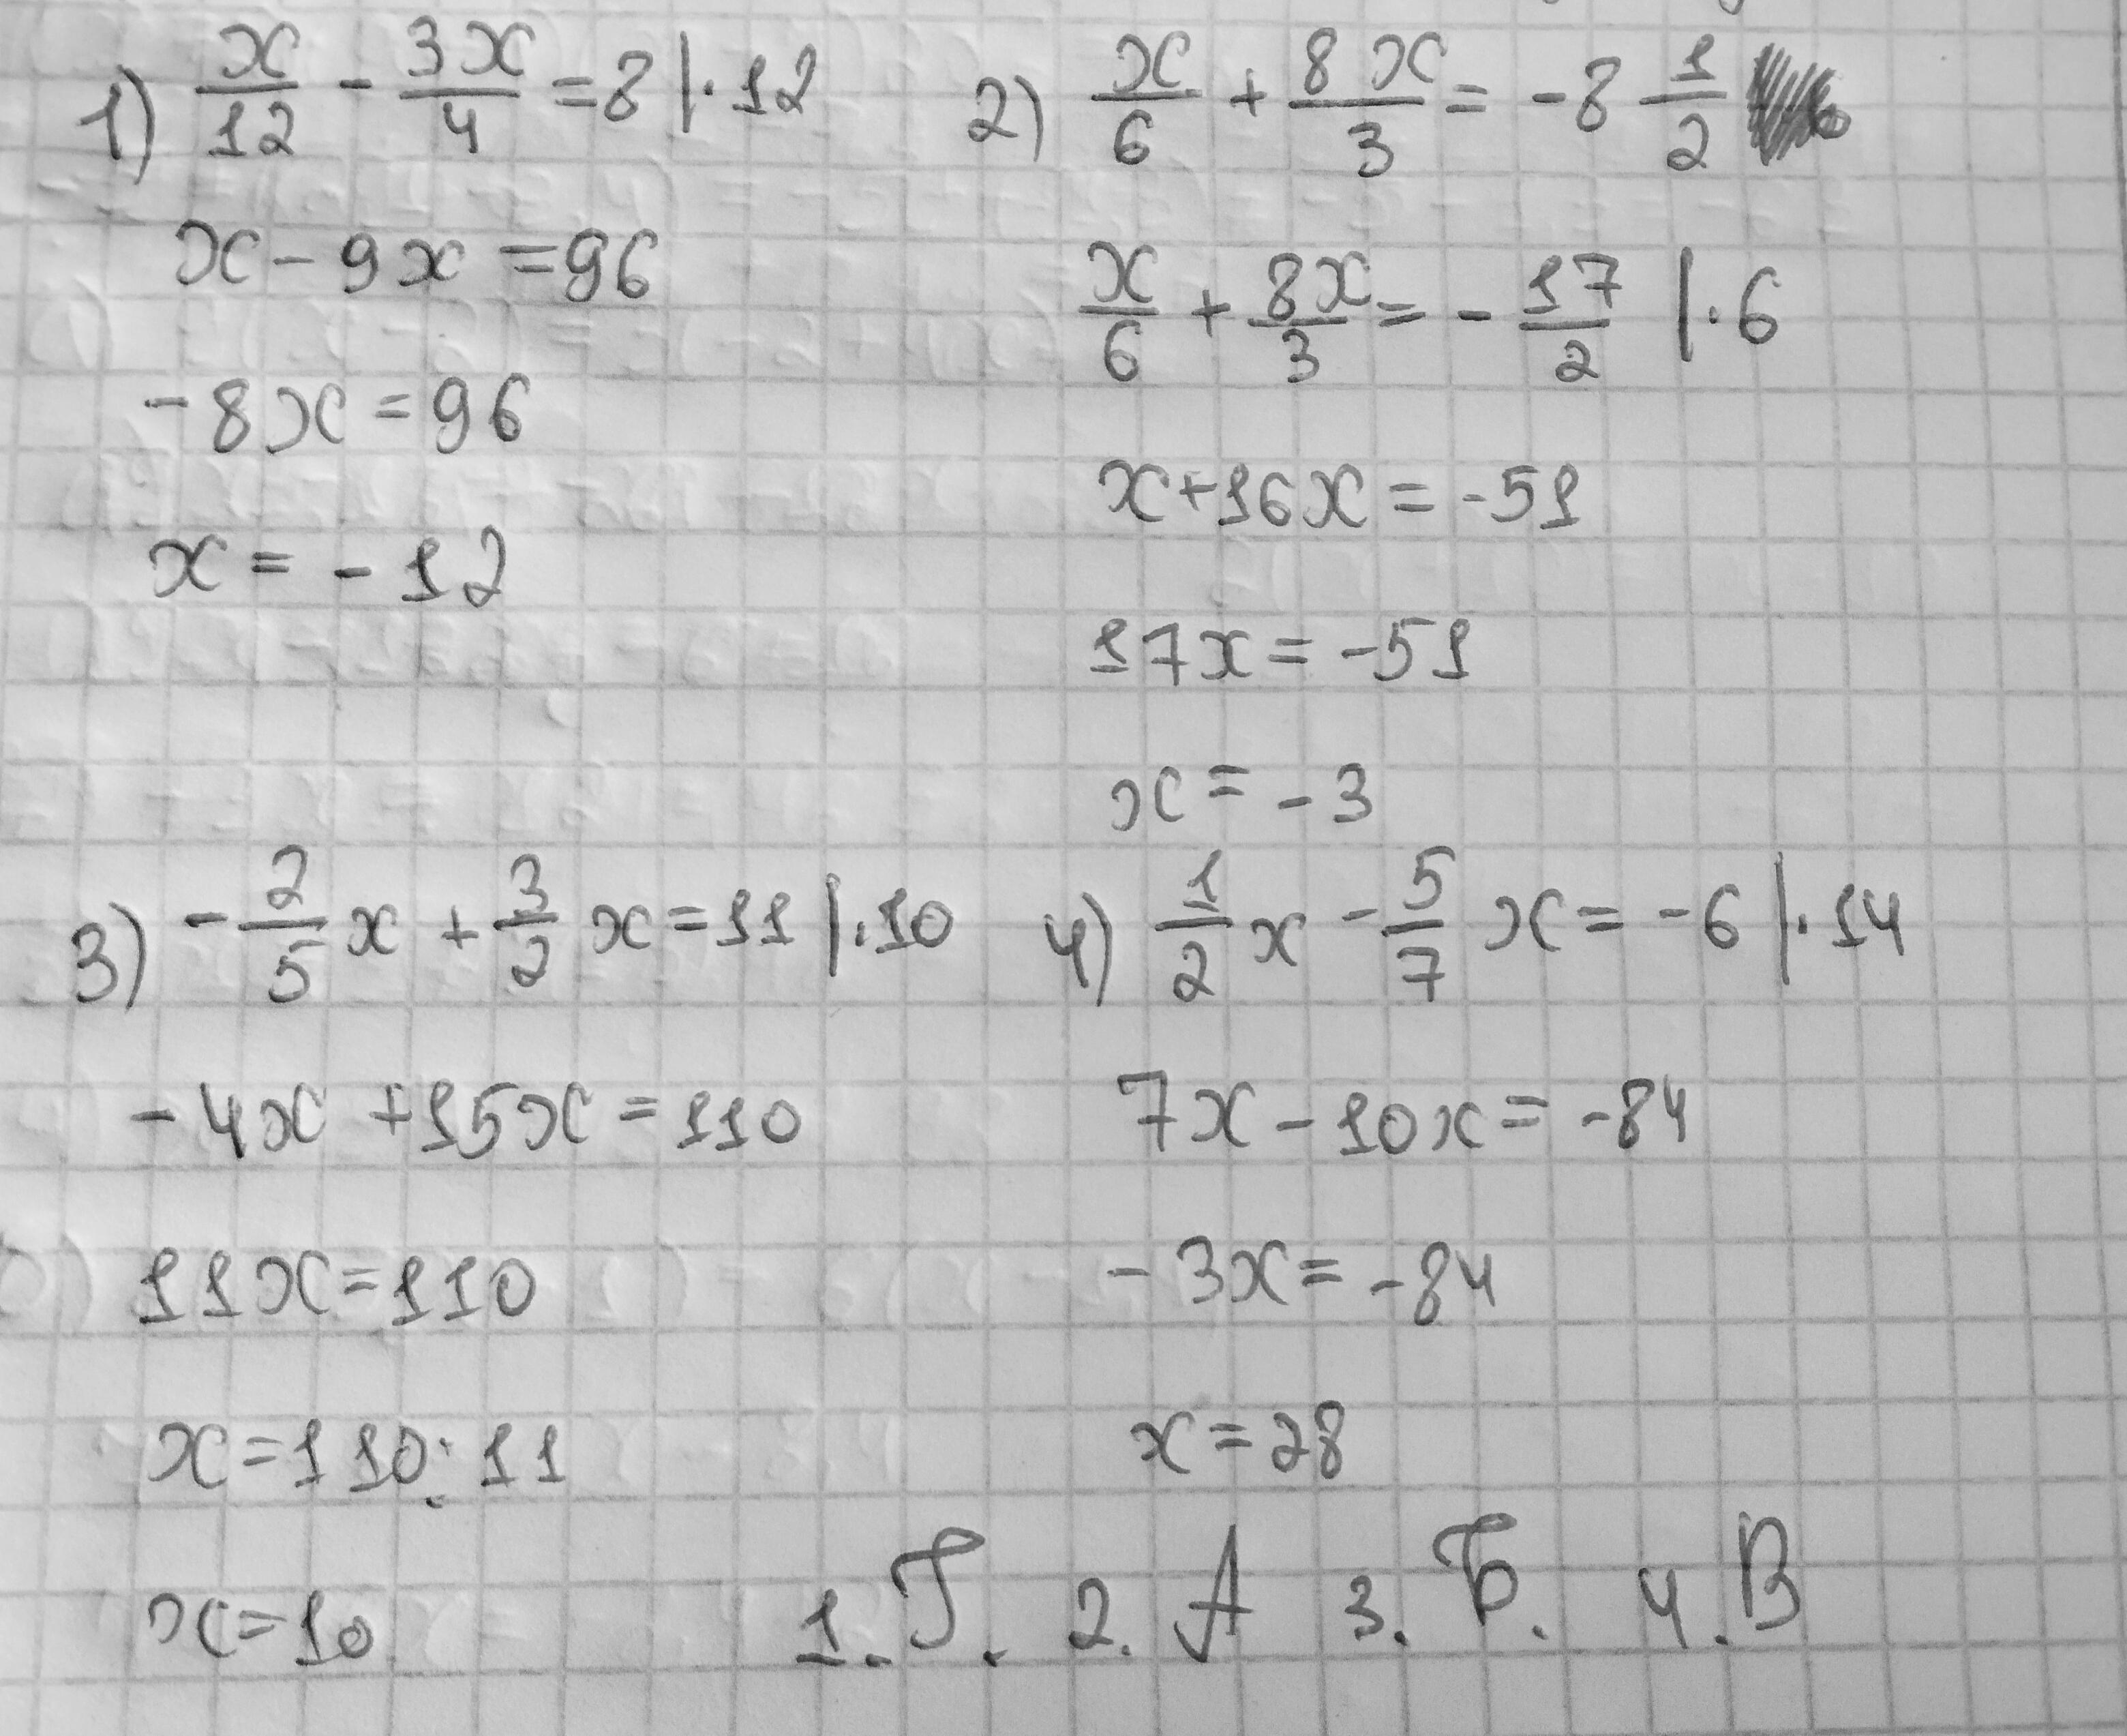 1) x/12 - 3x/4 = 8 |·12
x - 9x = 96
-8x = 96
x = -12
2) x/6 + 8x/3 = -8 1/2
x/6 + 8x/3 = -17/2 |·6
x+16x = -51
17x = -51
x = -3
3) -2/5 x + 3/2 x = 11 |·10
-4x +15x = 110
11x = 110
x = 110:11
x = 10
4) 1/2 x - 5/7 x = -6 |·14
7x - 10x = -84
-3x = -84
x = 28
1. Г. 2. А 3. Б. 4. В